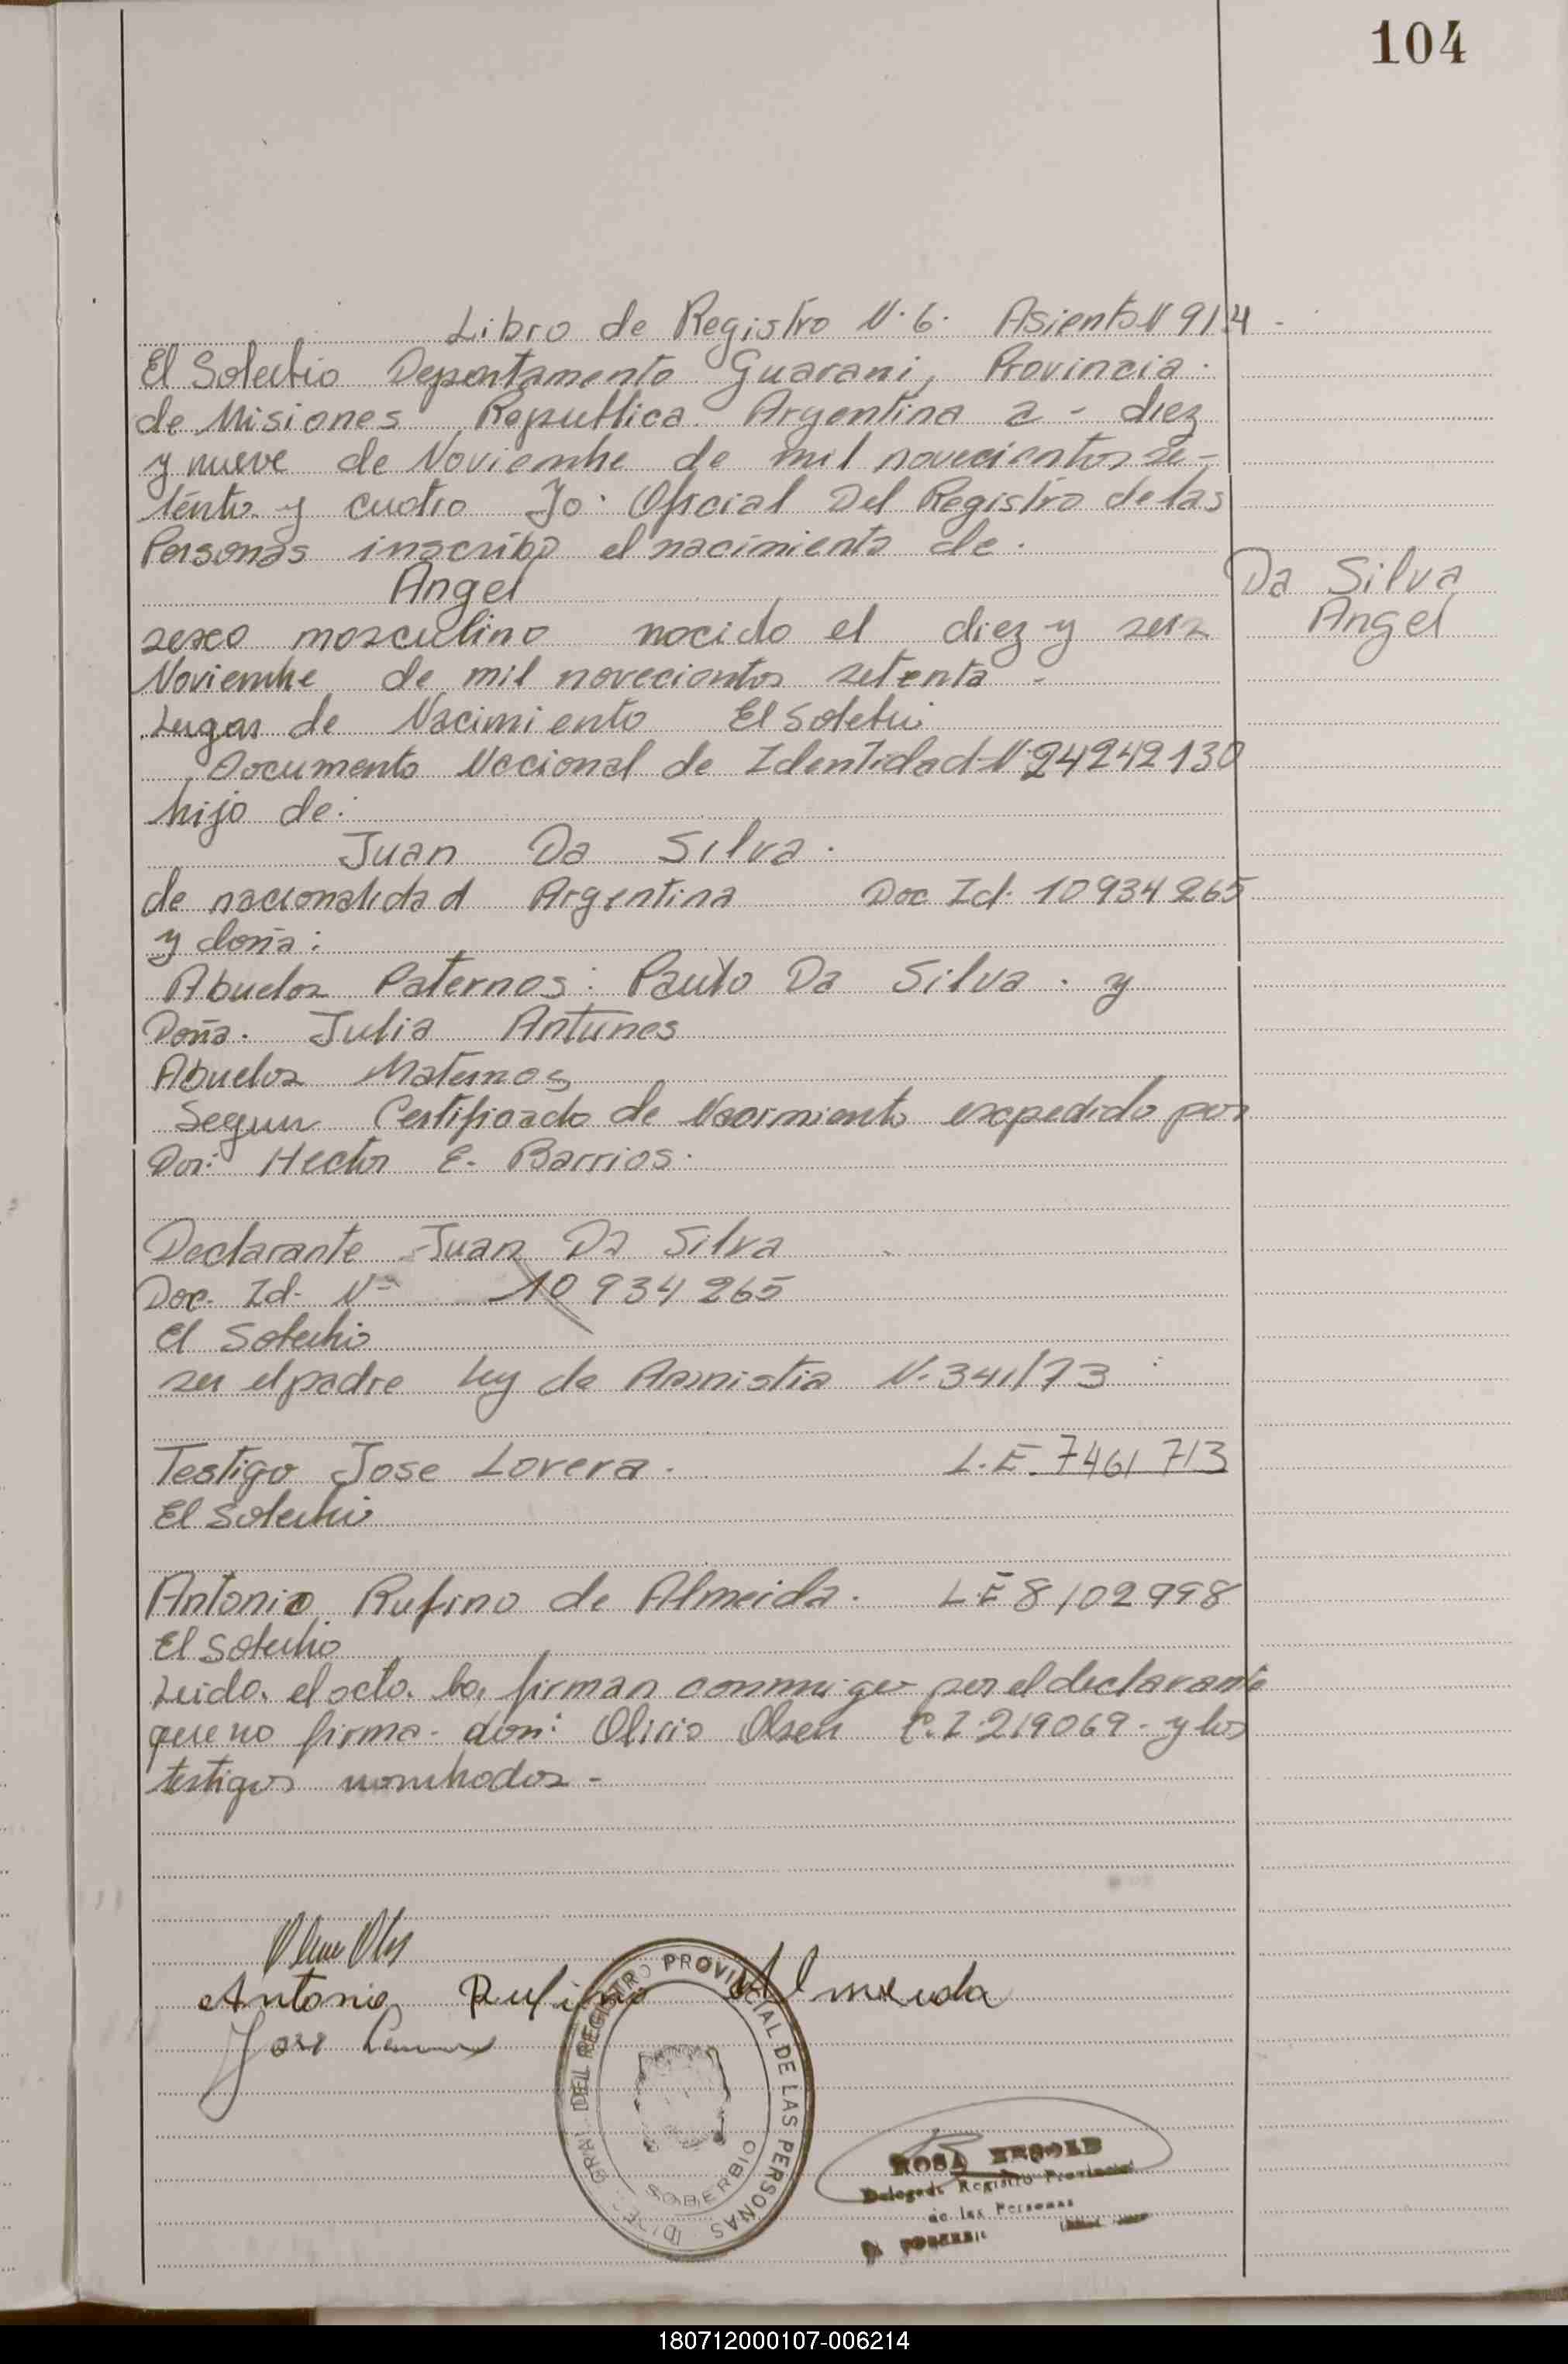 104
Libro de Registro N. 6. Asiento N 914 -
El Soberbio Departamento Guarani, Provincia.
de Misiones Republica Argentina a - diez
y nueve de Noviembre de mil novecientos se-
tenta y cuatro Yo. Oficial Del Registro de las
Personas inscribo el nacimiento de.
Angel
Da Silva
Angel
sexo masculino nacido el diez y seis
Noviembre de mil novecientos setenta -
Lugar de Nacimiento El Soberbio
Documento Nacional de Identidad N. 24242130
hijo de:
Juan Da Silva.
de nacionalidad Argentina Doc Id. 10934265
y doña:
Abuelos Paternos: Paulo Da Silva. y
Doña. Julia Antunes
Abuelos Maternos
Segun Certificado de Nacimiento expedido por
Don: Hector E. Barrios.
Declarante Juan Da Silva
Doc. Id. Nº 10 934 265
El Soberbio
ser el padre Ley de Amnistia N. 341/73
Testigo Jose Lovera. L.E. 7461 713
El Soberbio
Antonio Rufino de Almeida. L.E 8102998
El Soberbio
Leido el acto. lo firman conmigo por el declarante
que no firma. don: Olirio Olsen C.I. 219069 - y los
testigos nombrados -
Antonio Rufino Almeida
Jose
DEL REGISTRO PROVINCIAL DE LAS PERSONAS
SOBERBIO
ROSA
Delegada Registro Provincial
de las Personas
180712000107-006214